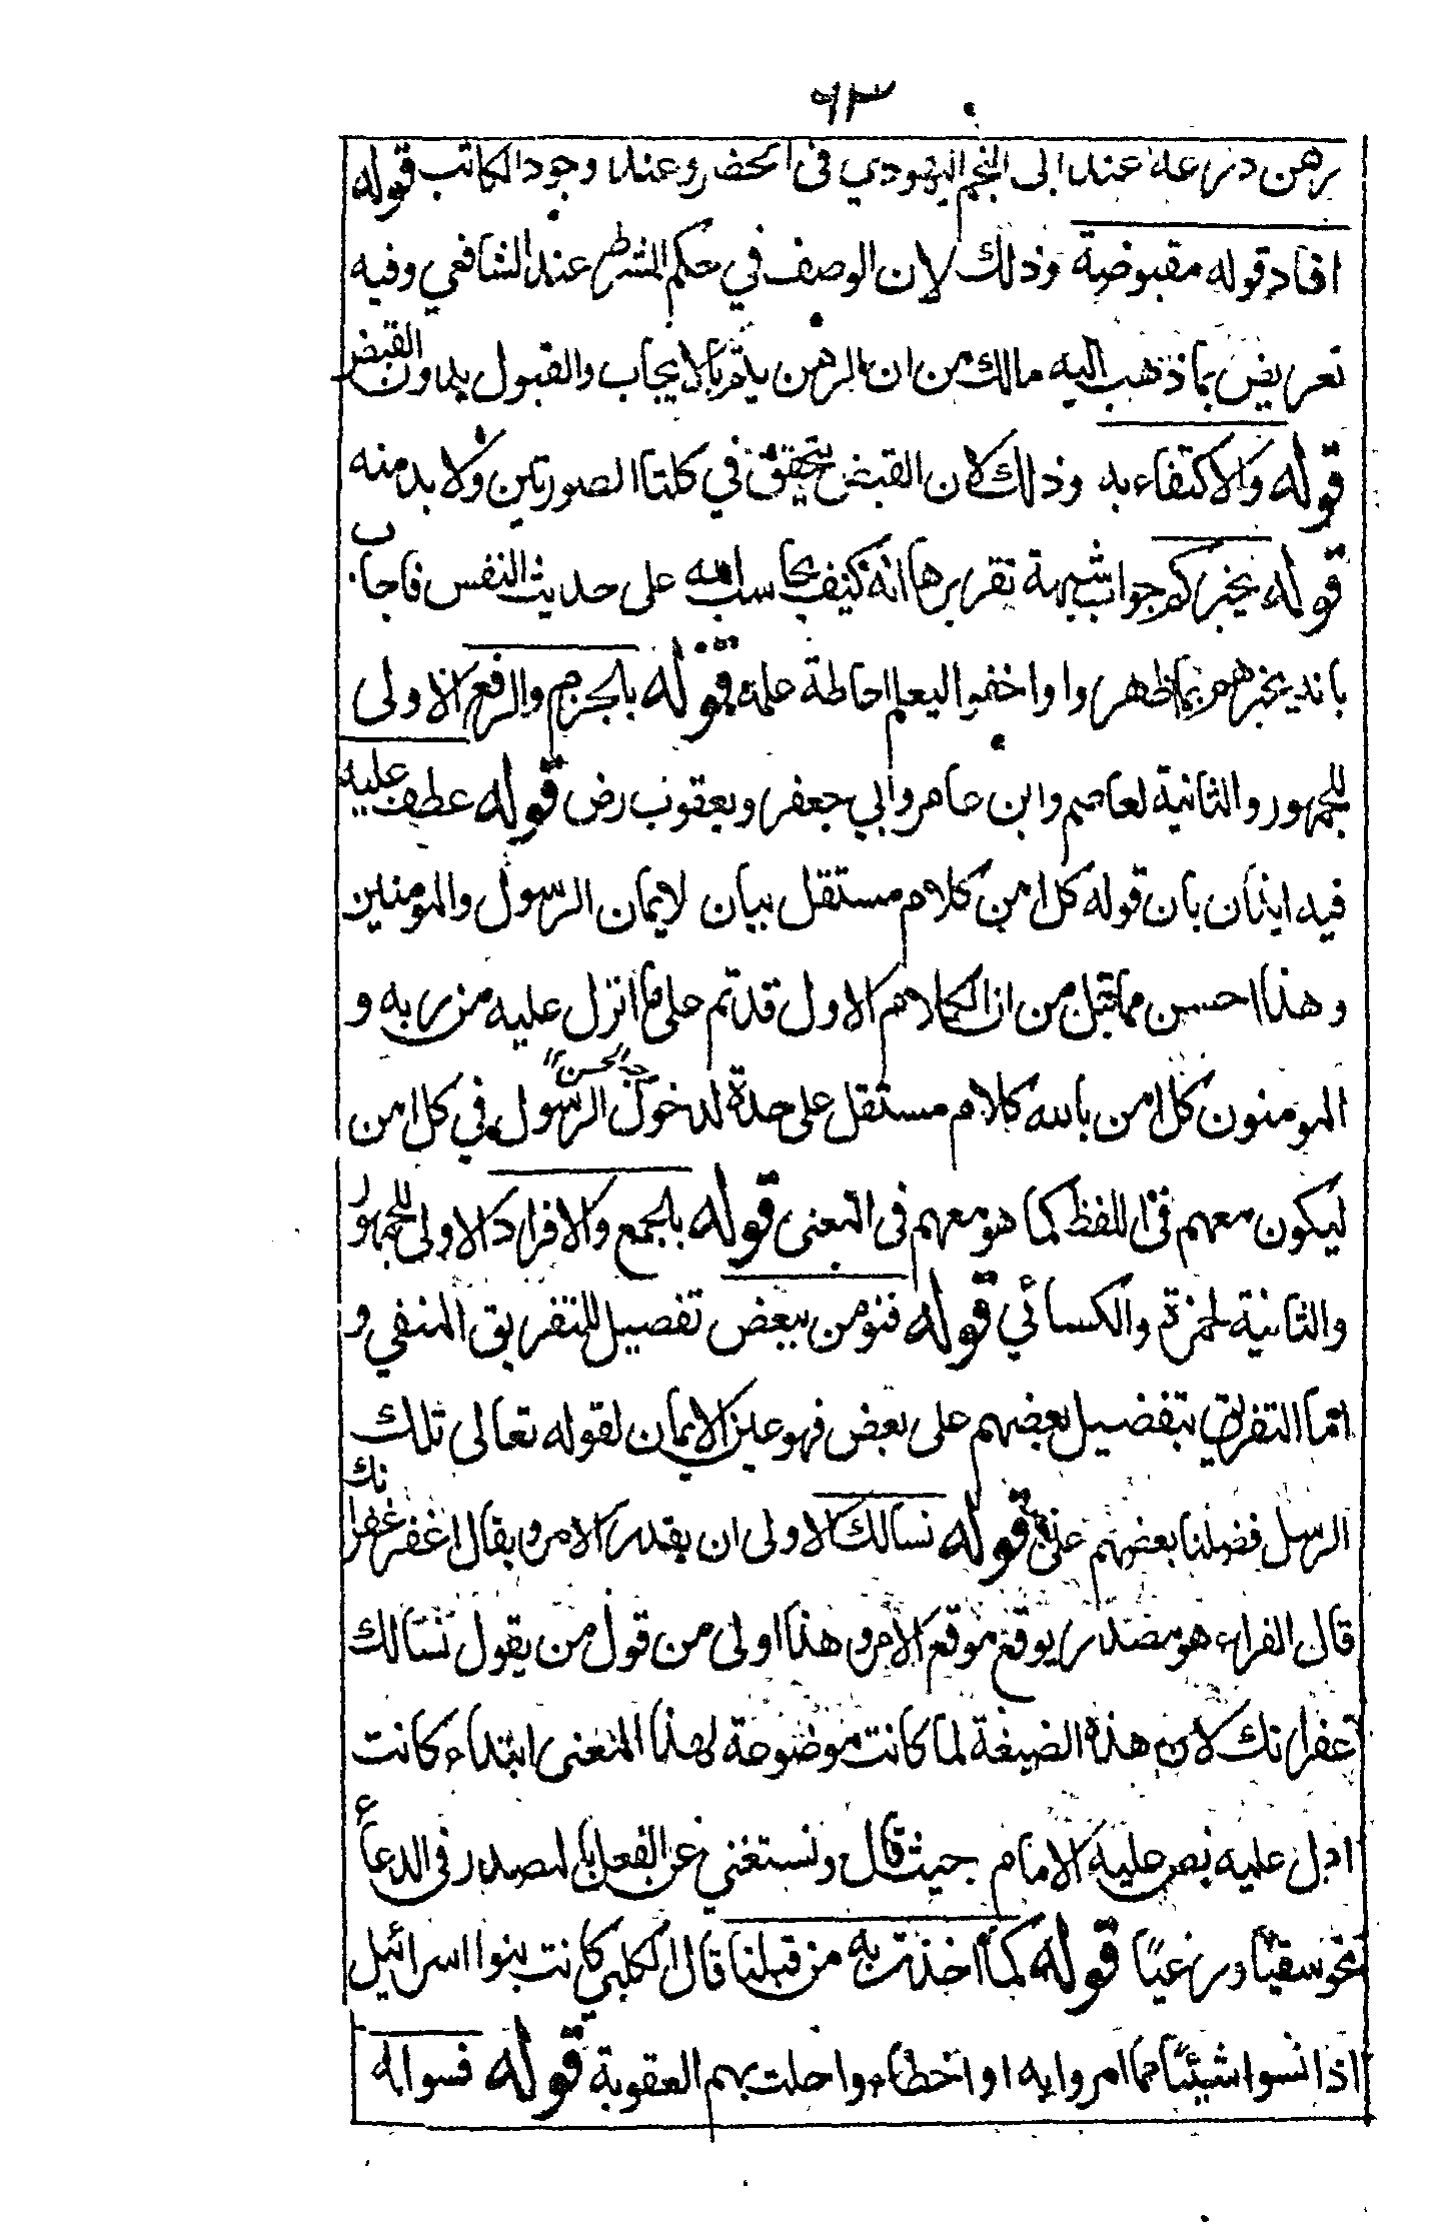 ٦٣
يرهن درعه عند ابى النجم اليهودي فى الحضر وعند وجود الكاتب قوله
افاد قوله مقبوضة وذلك لان الوصف في حكم الشرط عند الشافعي وفيه
تعريض بما ذهب اليه مالك من ان الرهن يتم بالايجاب والقبول بدون القبض
قوله والاكتفاء به وذلك لان القبض يتحقق في كلتا الصورتين ولا بد منه
قوله يخبركم جواب شبهة تقريرها انه كيف يحاسب الله على حديث النفس فاجاب
بانه يخبرهم بما اظهروا واخفوا ليعلم احاطة علمه قوله بالجزم والرفع الاولى
للجمهور والثانية لعاصم وابن عامر وابي جعفر ويعقوب رض قوله عطف عليه
فيه ايذان بان قوله كل امن كلام مستقل بيان لايمان الرسول والمومنين
وهذا احسن مما قيل من ان الكلام الاول قد تم على ما انزل عليه من ربه و
المومنون كل امن بالله كلام مستقل على حدة لدخول الرسول في كل امن
وجه الحسن ١٢
ليكون معهم فى اللفظ كما هو معهم فى المعنى قوله بالجمع والافراد الاولى للجمهور
والثانية لحمزة والكسائي قوله فنومن ببعض تفصيل للتفريق المنفي و
اما التفريق بتفضيل بعضهم على بعض فهو عين الايمان لقوله تعالى تلك
الرسل فضلنا بعضهم على بعض قوله نسالك الاولى ان يقدر الامر ويقال اغفر غفرانك
قال الفراء هو مصدر يوقع موقع الامر وهذا اولى من قول من يقول نسالك
غفرانك لان هذه الصيغة لما كانت موضوعة لهذا المعنى ابتداء كانت
ادل عليه نص عليه الامام حيث قال ونستغني عن الفعل بالمصدر فى الدعاء
نحو سقيًا ورعيًا قوله كما اخذت به من قبلنا قال الكلبي كانت بنوا اسرائيل
اذا نسوا شيئًا مما امروا به او اخطاءوا حلت بهم العقوبة قوله فسواله